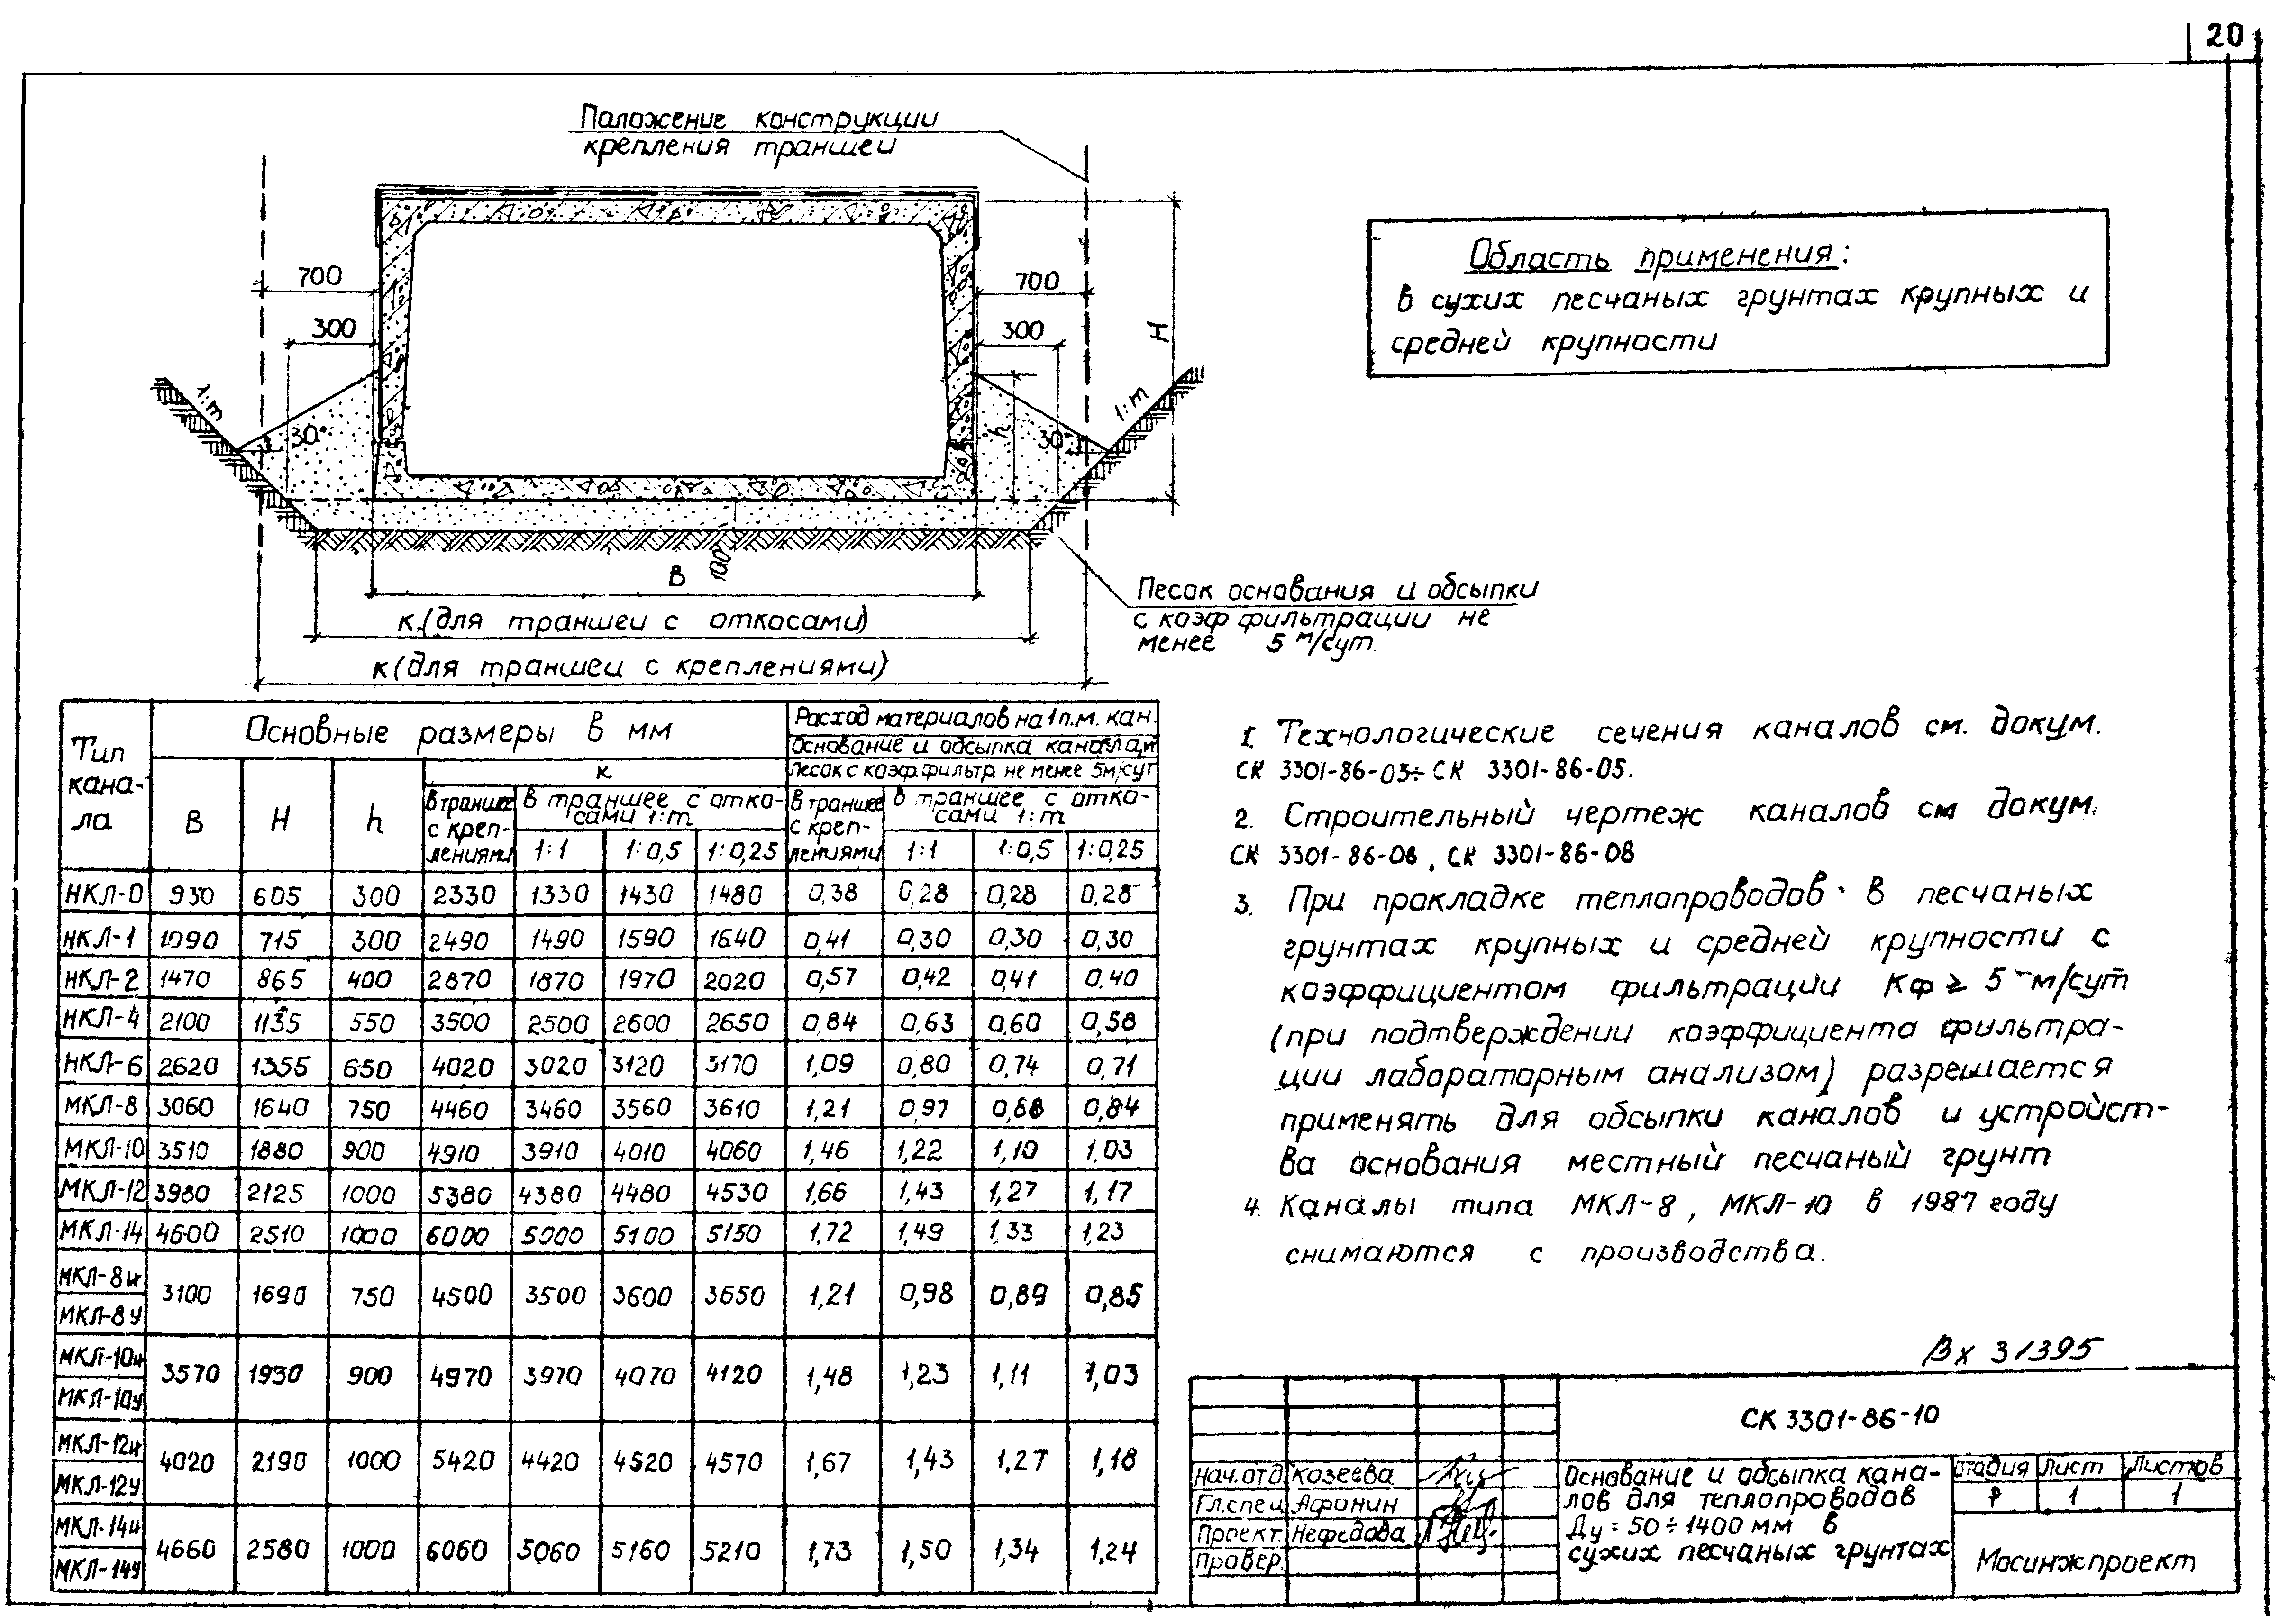 20
Положение конструкции
крепления траншеи
700
700
300
300
H
1:m
1:m
30°
30°
h
100
В
к (для траншеи с откосами)
к (для траншеи с креплениями)
Песок основания и обсыпки
с коэф фильтрации не
менее 5 м/сут.
Область применения:
в сухих песчаных грунтах крупных и
средней крупности
Тип кана-ла | Основные размеры в мм | Расход материалов на 1 п.м. кан.
Основание и обсыпка канала, м³
к | Песок с коэф. фильтр не менее 5 м/сут
В | H | h | в траншее с креп-лениями | в траншее с отко-сами 1:m | в траншее с креп-лениями | в траншее с отко-сами 1:m
1:1 | 1:0,5 | 1:0,25 | 1:1 | 1:0,5 | 1:0,25
НКЛ-0 930 605 300 2330 1330 1430 1480 0,38 0,28 0,28 0,28
НКЛ-1 1090 715 300 2490 1490 1590 1640 0,41 0,30 0,30 0,30
НКЛ-2 1470 865 400 2870 1870 1970 2020 0,57 0,42 0,41 0,40
НКЛ-4 2100 1135 550 3500 2500 2600 2650 0,84 0,63 0,60 0,58
НКЛ-6 2620 1355 650 4020 3020 3120 3170 1,09 0,80 0,74 0,71
МКЛ-8 3060 1640 750 4460 3460 3560 3610 1,21 0,97 0,88 0,84
МКЛ-10 3510 1880 900 4910 3910 4010 4060 1,46 1,22 1,10 1,03
МКЛ-12 3980 2125 1000 5380 4380 4480 4530 1,66 1,43 1,27 1,17
МКЛ-14 4600 2510 1000 6000 5000 5100 5150 1,72 1,49 1,33 1,23
МКЛ-8и
МКЛ-8у
3100 1690 750 4500 3500 3600 3650 1,21 0,98 0,89 0,85
МКЛ-10и
МКЛ-10у
3570 1930 900 4970 3970 4070 4120 1,48 1,23 1,11 1,03
МКЛ-12и
МКЛ-12у
4020 2190 1000 5420 4420 4520 4570 1,67 1,43 1,27 1,18
МКЛ-14и
МКЛ-14у
4660 2580 1000 6060 5060 5160 5210 1,73 1,50 1,34 1,24
1. Технологические сечения каналов см. докум.
СК 3301-86-03÷ СК 3301-86-05.
2. Строительный чертеж каналов см докум.
СК 3301-86-06, СК 3301-86-08
3. При прокладке теплопроводов в песчаных
грунтах крупных и средней крупности с
коэффициентом фильтрации Кф ≥ 5 м/сут
(при подтверждении коэффициента фильтра-
ции лабораторным анализом) разрешается
применять для обсыпки каналов и устройст-
ва основания местный песчаный грунт
4. Каналы типа МКЛ-8, МКЛ-10 в 1987 году
снимаются с производства.
Вх 31395
СК 3301-86-10
Нач.отд Козеева
Гл.спец Афонин
Проект. Нефедова
Провер.
Основание и обсыпка кана-
лов для теплопроводов
Ду = 50÷1400 мм в
сухих песчаных грунтах
Стадия Лист Листов
Р 1 1
Мосинжпроект